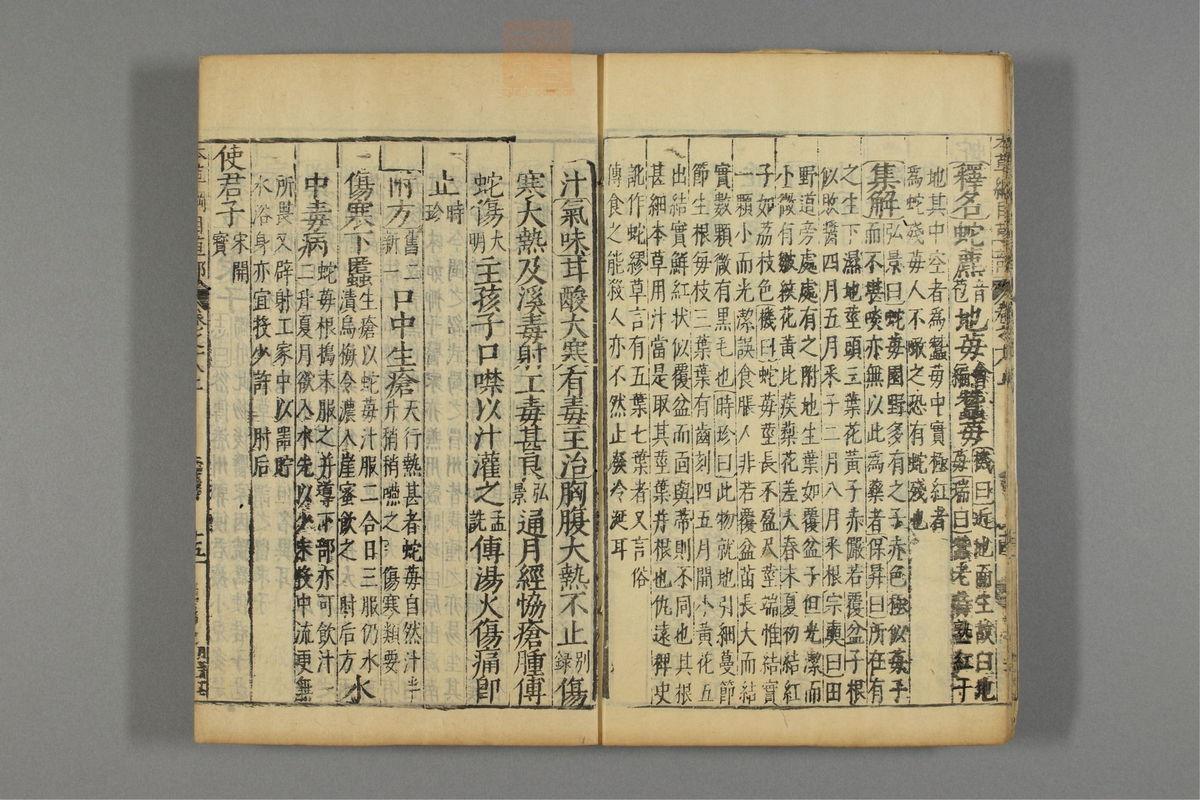 釋名蛇藨音苞地苺會編蠶苺瑞曰蠶老時熟紅于
地其中空者為蠶苺中實極紅者
為蛇殘苺人不噉之恐有蛇殘也
集解弘景曰蛇苺園野多有之子赤色極似苺子
而不堪啖亦無以此為藥者保昇曰所在有
之生下濕地莖頭三葉花黃子赤儼若覆盆子根
似敗醬四月五月采子二月八月采根宗奭曰田
野道旁處處有之附地生葉如覆盆子但光潔而
小微有皺紋花黃比蒺藜花差大春末夏初結紅
子如荔枝色機曰蛇苺莖長不盈尺莖端惟結實
一顆小而光潔誤食脹人非若覆盆苗長大而結
實數顆微有黑毛也時珍曰此物就地引細蔓節
節生根每枝三葉葉有齒刻四五月開小黃花五
出結實鮮紅狀似覆盆而面與蒂則不同也其根
甚細本草用汁當是取其莖葉并根也仇遠稗史
訛作蛇繆草言有五葉七葉者又言俗
傳食之能殺人亦不然止發冷涎耳
汁氣味甘酸大寒有毒主治胸腹大熱不止別錄傷
寒大熱及溪毒射工毒甚良弘景通月經恊瘡腫傅
蛇傷大明主孩子口噤以汁灌之孟詵傅湯火傷痛即
止時珍
附方舊二新一口中生瘡天行熱甚者蛇苺自然汁半升稍稍嚥之傷寒類要
傷寒下䘌生瘡以蛇苺汁服二合日三服仍水漬烏梅令濃入崖蜜飲之肘后方水
中毒病蛇苺根搗末服之并導下部亦可飲汁一二升夏月欲入水先以少末投中流更無
所畏又辟射工家中以器貯
水浴身亦宜投少許肘后
使君子宋開寶